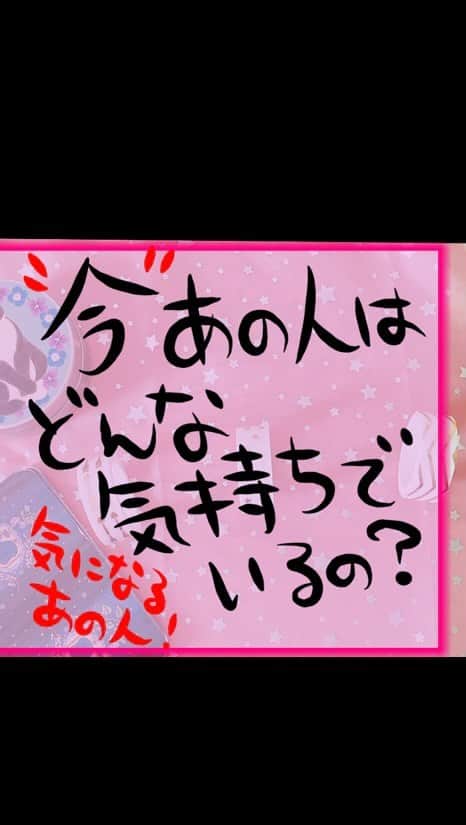 "今"あの人は
どんな
気持ちで
いるの?
気になる
あの人!